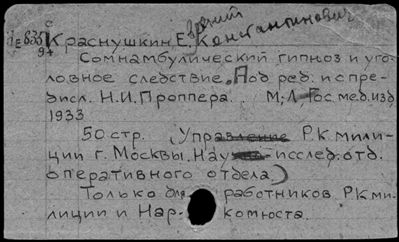 с
1е835
94
Краснушкин, Е. вгений Константинович
Сомнамбулический гипноз и уго-
ловное следствие. Под ред. и с пре-
дисл. Н.И. Проппера.. М., Л., Гос. мед. изд
1933
50 стр. (Управление Р.К. мили-
ции г. Москвы. Науч исслед. отд.
оперативного отдела)
Только для работников РКми-
лиции и Нар-комюста.